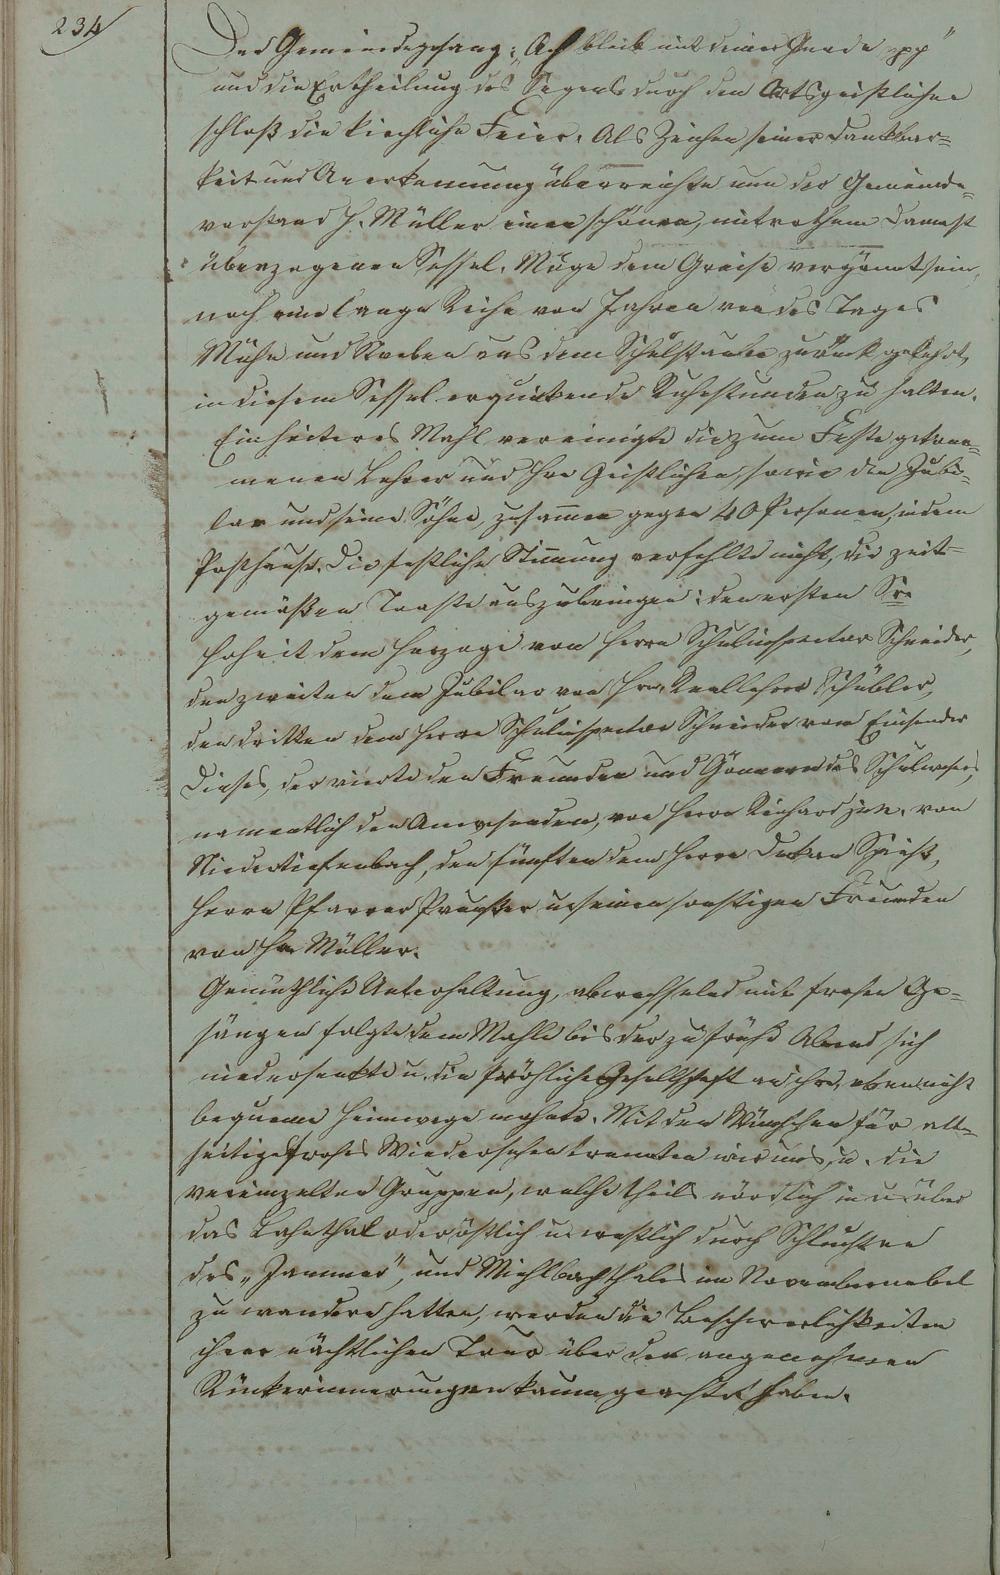 234
Der Gemeindegesang: „Ach bleib mit deiner Gnade ppp“
und die Ertheilung des Segens durch den Ortsgeistlichen
schloß die kirchliche Feier. Als Zeichen seiner Dankbar=
keit und Anerkennung überreichte nun der Gemeinde=
vorstand H. Müller einen schönen, mit rothem Damast
überzogenen Sessel. Möge dem Greise vergönnt sein,
noch eine lange Reihe von Jahren von des Tages
Mühe und Streben aus dem Schulstaube zurück gekehrt,
in diesem Sessel erquickende Ruhestunden zu halten.
Ein heiteres Mahl vereinigte die zum Feste gekom=
menen Lehrer und Hrn Geistlichen, sowie den Jubi=
lar und seine Söhne, zusammen gegen 40 Personen, in dem
Posthause. Die festliche Stimmung verfehlte nicht, die zeit=
gemäßen Toaste auszubringen: den ersten Sr.
Hoheit dem Herzoge von Herrn Schulinspector Schneider,
den zweiten dem Jubilar von Hrn. Reallehrer Schübler,
den dritten dem Herrn Schulinspector Schneider vom Einsender
Dieses, der vierte den Freunden und Gönnern des Schulwesens,
namentlich den Anwesenden, von Herrn Reichard jun. von
Niedertiefenbach, den fünften dem Herrn Dekan Spieß,
Herrn Pfarrer u. seinen sonstigen Freunden
von Hr. Müller.
Gemüthliche Unterhaltung, abwechselnd mit frohen Ge=
sängen folgte dem Mahle bis der zu frühe Abend sich
niedersenkte u. die fröhliche Gesellschaft an ihre, eben nicht
bequeme Heimwege mahnte. Mit den Wünschen für all=
seitiges frohes Wiedersehen trennten wir uns, u. die
vereinzelten Gruppen, welche theils nördlich in u. über
das Lahnthal oder östlich u. westlich durch Schluchten
des „Jammer“, und Mühlbachthales im Novembernebel
zu wandern hatten, werden die Beschwerlichkeiten
ihrer nächtlichen Tour über den angenehmen
Rückerinnerungen kaum geachtet haben.